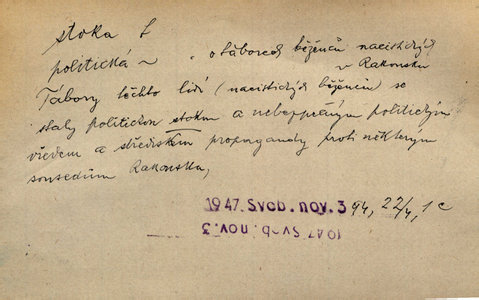 stoka f
politická ~ , o táborech běženců nacistických
v Rakousku
Tábory těchto lidí (nacistických běženců) se
staly politickou stokou a nebezpečným politickým
vředem a střediskem propagandy proti některým
sousedům Rakouska,
1947 Svob. nov. 3 94, 22/4, 1 c
1947 Svob. nov. 3